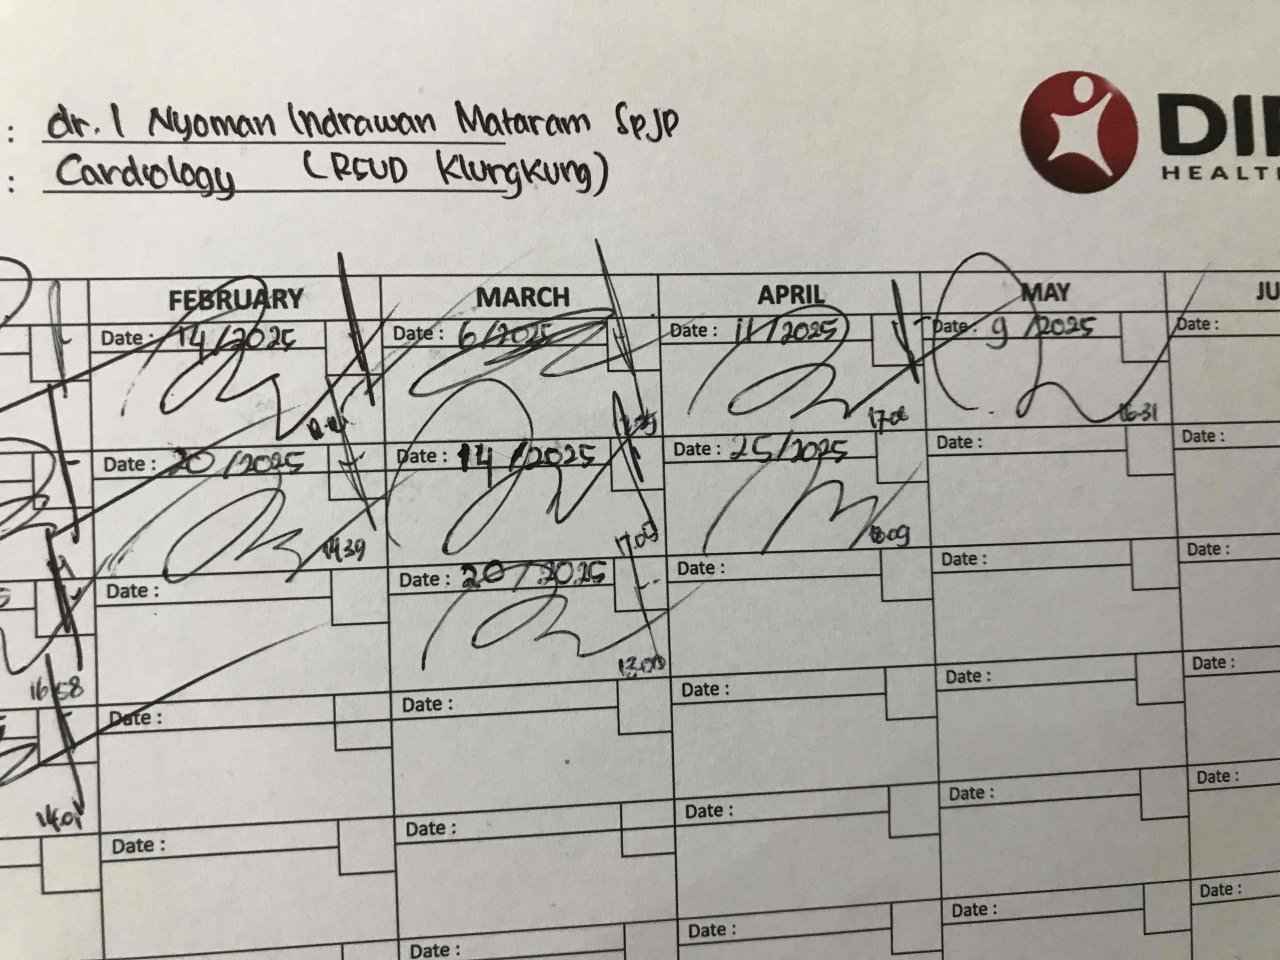 : dr. I Nyoman Indrawan Mataram SpJP
: Cardiology (RSUD Klungkung)
DI
HEALT
FEBRUARY MARCH APRIL MAY JU
Date : 14/2025 Date : 6/2025 Date : 11/2025 Date : 9/2025 Date :
17.01 16.31
Date : 20/2025 Date : 14/2025 Date : 25/2025 Date : Date :
14.39 17.05 18.09
Date : Date : 20/2025 Date : Date : Date :
16.58 13.00
Date : Date : Date : Date : Date :
14.01
Date : Date : Date : Date : Date :
Date : Date : Date : Date :